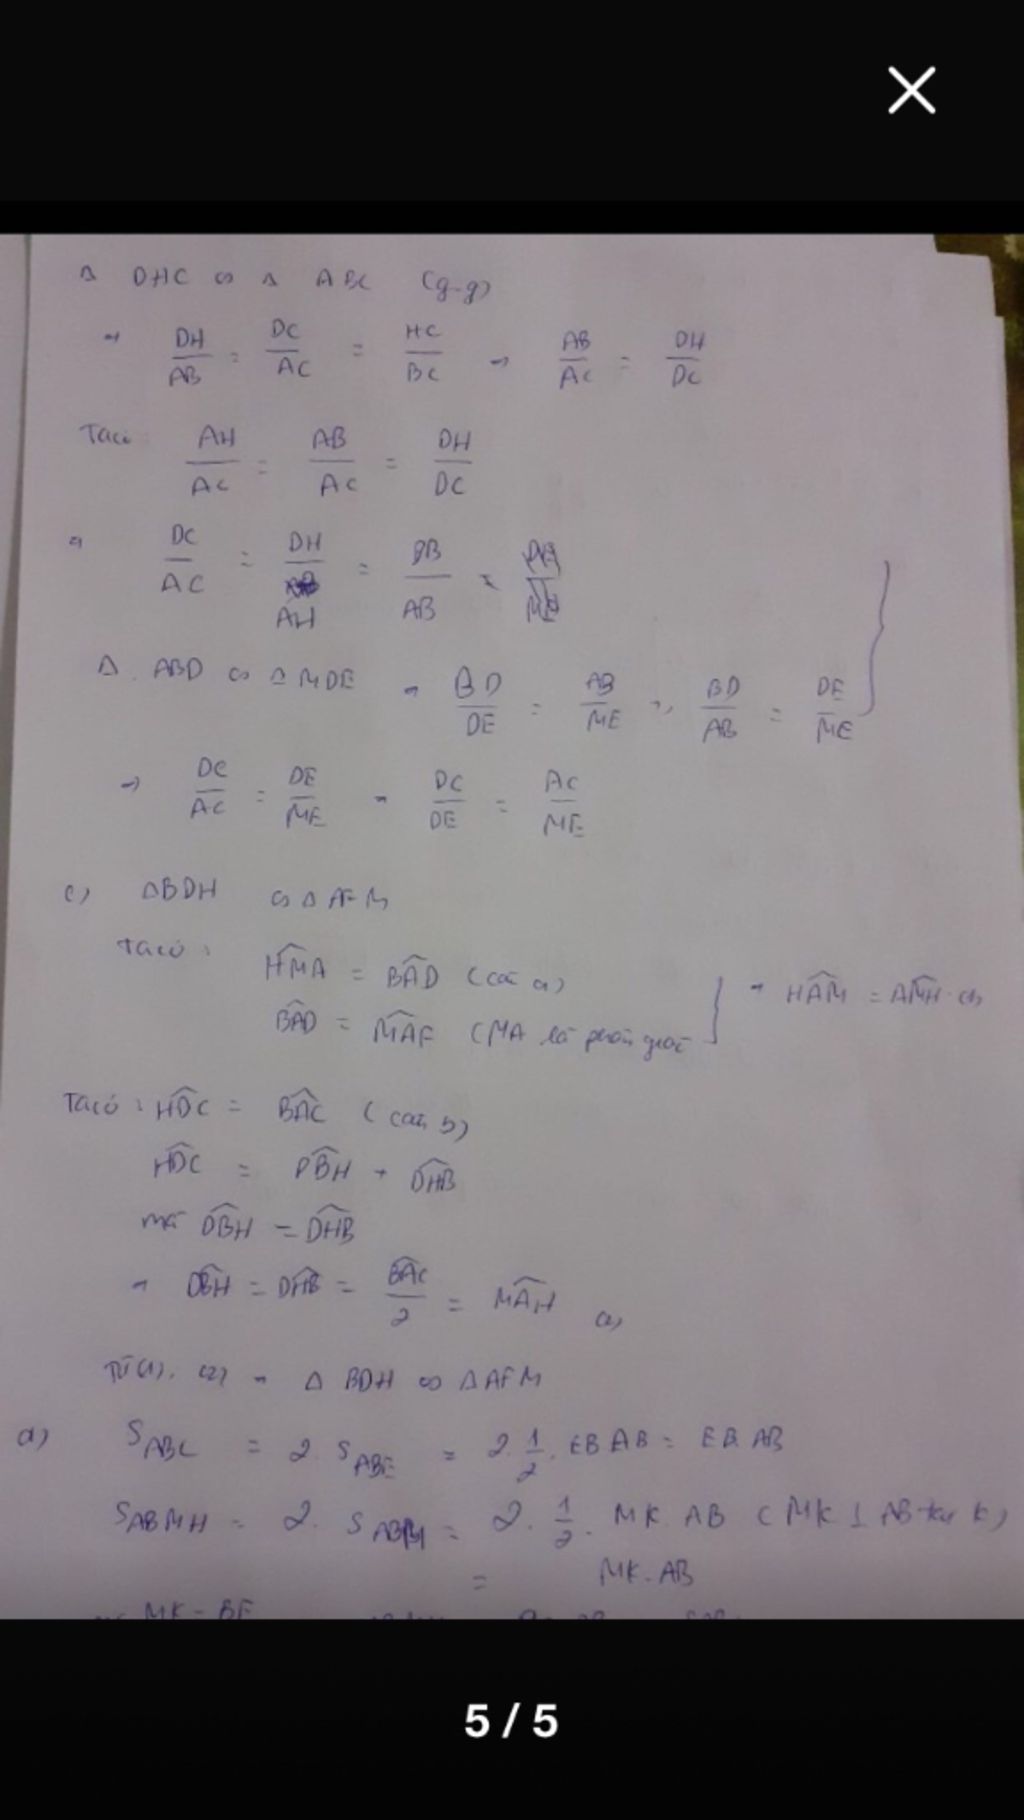 Δ DHC ∽ Δ ABC (g-g)
→ DH/AB = DC/AC = HC/BC → AB/AC = DH/DC
Ta có: AH/AC = AB/AC = DH/DC
→ DC/AC = DH/AH = DB/AB
Δ ABD ∽ Δ MDE → BD/DE = AB/ME → BD/AB = DE/ME
→ DC/AC = DE/ME → DC/DE = AC/ME
c) ΔBDH ∽ Δ AFM
Ta có: HMA = BAD (câu a)
BAD = MAF (MA là phân giác → HAM = AMH (1)
Ta có: HDC = BAC (câu b)
HDC = DBH + DHB
mà DBH = DHB
→ DBH = DHB = BAC/2 = MAH (2)
Từ (1), (2) → Δ BDH ∽ Δ AFM
d) S ABC = 2. S ABE = 2. 1/2. EB AB = EB. AB
S ABMH = 2. S ABM = 2. 1/2. MK. AB ( MK ⊥ AB tại K)
= MK. AB
MK = BE
5 / 5